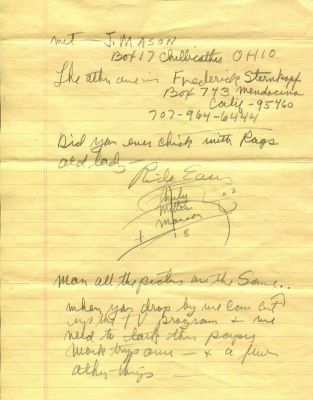 met — J. MASON
Box 17 Chillicathee OHIO
The other one is Frederick Sternkopf
Box 743 Mendocino
Calif - 95460
707-964-6444
Did you ever chick with Rags
old lady —
Ride Easy
Charly
Milles
Manson
man all the pictures are the Same..
when you drop by we can cut
up the TV program & we
need to talk this
work trip over — & a few
other things —